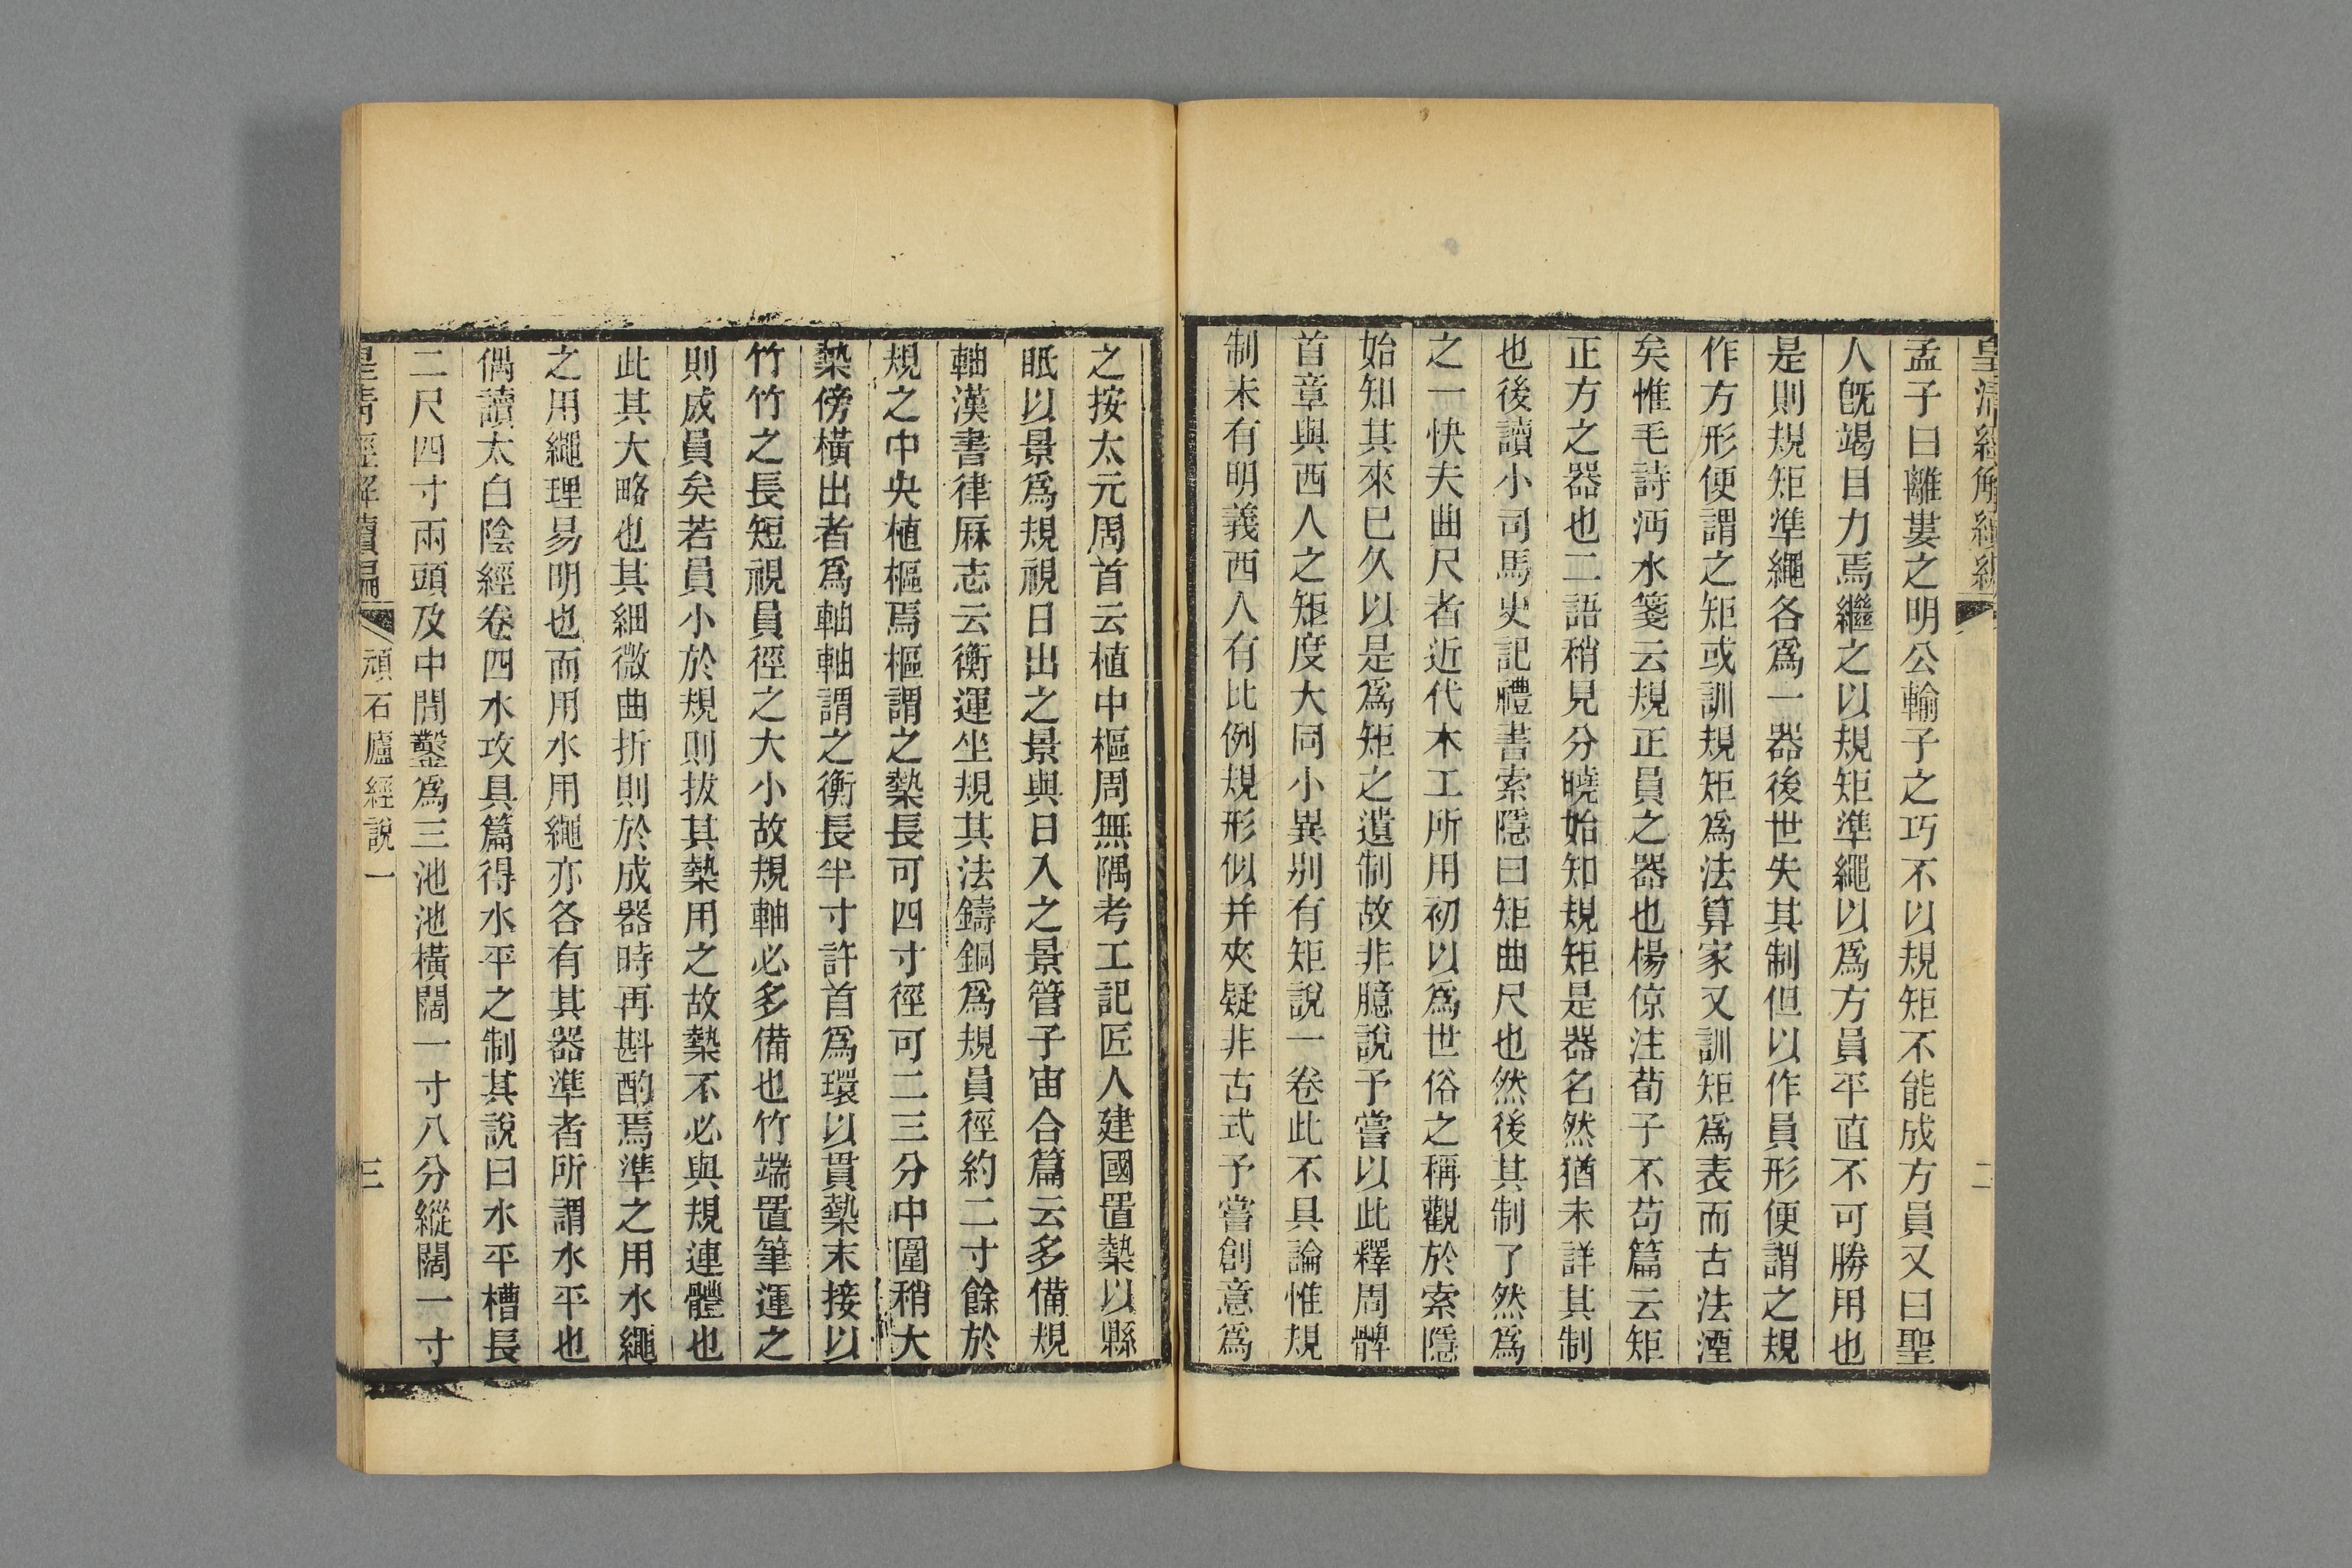 皇清經解續編
二
孟子曰離婁之明公輸子之巧不以規矩不能成方員又曰聖
人旣竭目力焉繼之以規矩準繩以爲方員平直不可勝用也
是則規矩準繩各爲一器後世失其制但以作員形便謂之規
作方形便謂之矩或訓規矩爲法算家又訓矩爲表而古法湮
矣惟毛詩沔水箋云規正員之器也楊倞注荀子不苟篇云矩
正方之器也二語稍見分曉始知規矩是器名然猶未詳其制
也後讀小司馬史記禮書索隱曰矩曲尺也然後其制了然爲
之一快夫曲尺者近代木工所用初以爲世俗之稱觀於索隱
始知其來已久以是爲矩之遺制故非臆說予嘗以此釋周髀
首章與西人之矩度大同小異別有矩說一卷此不具論惟規
制未有明義西人有比例規形似并夾疑非古式予嘗創意爲
之按太元周首云植中樞周無隅考工記匠人建國置槷以縣
眡以景爲規視日出之景與日入之景管子宙合篇云多備規
軸漢書律厤志云衡運生規其法鑄銅爲規員徑約二寸餘於
規之中央植樞焉樞謂之槷長可四寸徑可二三分中圍稍大
槷傍橫出者爲軸軸謂之衡長半寸許首爲環以貫槷末接以
竹竹之長短視員徑之大小故規軸必多備也竹端置筆運之
則成員矣若員小於規則拔其槷用之故槷不必與規連體也
此其大略也其細微曲折則於成器時再斟酌焉準之用水繩
之用繩理易明也而用水用繩亦各有其器準者所謂水平也
偶讀太白陰經卷四水攻具篇得水平之制其說曰水平槽長
二尺四寸兩頭及中閒鑿爲三池池橫闊一寸八分縱闊一寸
皇清經解續編
頑石廬經說一
三